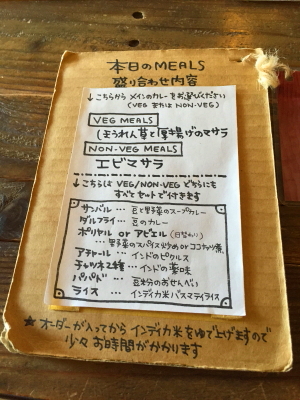 本日のMEALS
盛り合わせ内容
↓こちらから メインのカレーをお選びください
(VEG または NON-VEG)
VEG MEALS
ほうれん草と厚揚げのマサラ
NON-VEG MEALS
エビマサラ
↓こちらは VEG/NON-VEG どちらにも
すべてセットで付きます
サンバル … 豆と野菜のスープカレー
ダルフライ … 豆のカレー
ポリヤル or アビエル (日替わり)
… 野菜のスパイス炒め or ココナッツ煮
アチャール … インドのピクルス
チャツネ2種 … インドの薬味
パパド … 豆粉のおせんべい
ライス … インディカ米バスマティライス
★オーダーが入ってから インディカ米をゆで上げますので
少々お時間がかかります